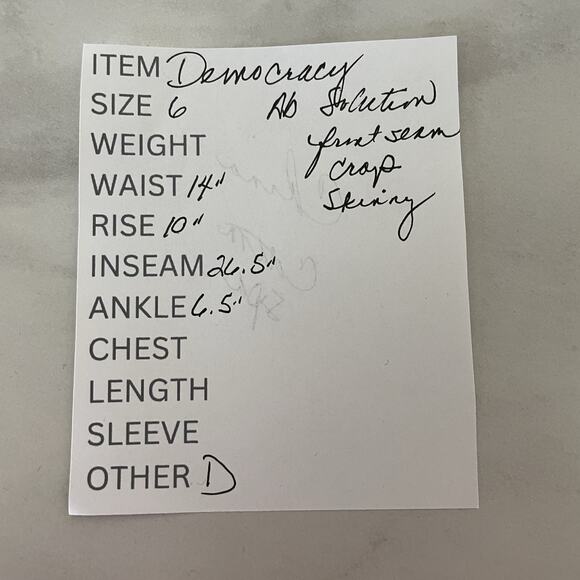 ITEM Democracy
SIZE 6 Ab Solution
front seam
WEIGHT
crop
WAIST 14"
skinny
RISE 10"
INSEAM 26.5"
ANKLE 6.5"
CHEST
LENGTH
SLEEVE
OTHER D